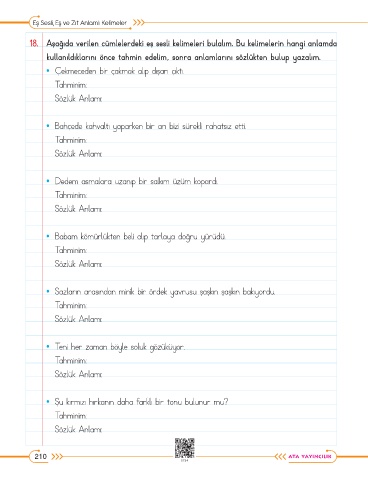 Eş Sesli, Eş ve Zıt Anlamlı Kelimeler
18. Aşağıda verilen cümlelerdeki eş sesli kelimeleri bulalım. Bu kelimelerin hangi anlamda
kullanıldıklarını önce tahmin edelim, sonra anlamlarını sözlükten bulup yazalım.
• Çekmeceden bir çakmak alıp dışarı çıktı.
Tahminim:
Sözlük Anlamı:
• Bahçede kahvaltı yaparken bir arı bizi sürekli rahatsız etti.
Tahminim:
Sözlük Anlamı:
• Dedem asmalara uzanıp bir salkım üzüm kopardı.
Tahminim:
Sözlük Anlamı:
• Babam kömürlükten beli alıp tarlaya doğru yürüdü.
Tahminim:
Sözlük Anlamı:
• Sazların arasından minik bir ördek yavrusu şaşkın şaşkın bakıyordu.
Tahminim:
Sözlük Anlamı:
• Teni her zaman böyle soluk gözüküyor.
Tahminim:
Sözlük Anlamı:
• Şu kırmızı hırkanın daha farklı bir tonu bulunur mu?
Tahminim:
Sözlük Anlamı:
210
ATA YAYINCILIK